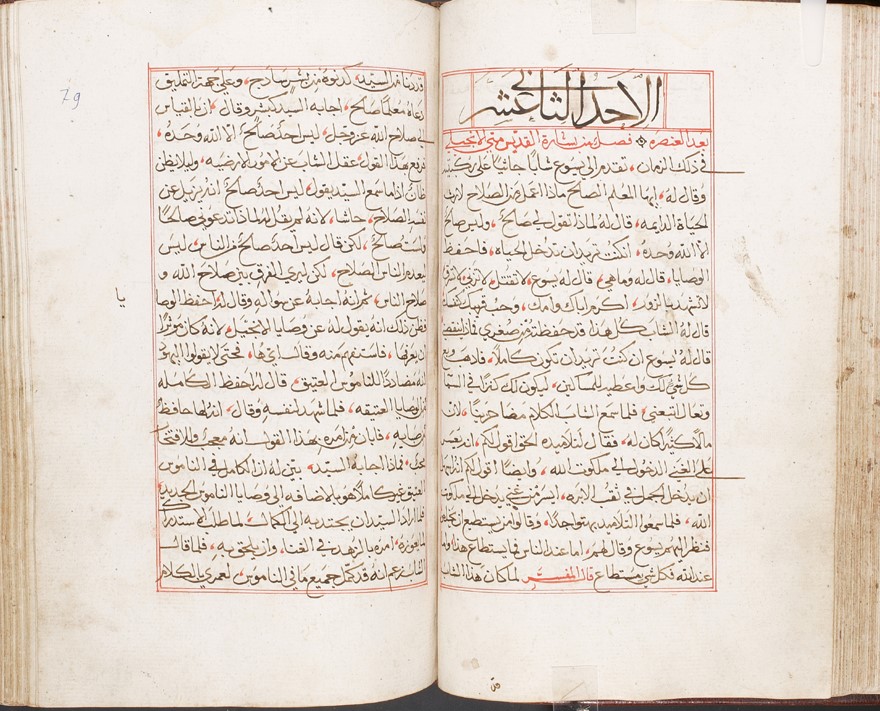 الاحد الثاني عشر
بعد العنصره فصل من بشارة القديس متى الانجيلي
في ذلك الزمان، تقدم الى يسوع شاب جاثيا على ركبتيه
وقال له، ايها المعلم الصالح ماذا اعمل من الصلاح لارث
لحياة الدايمه، قال له لماذا تقول لي صالح، وليس صالح
الا الله وحده، ان كنت تريد ان تدخل الحياه، فاحفظ
الوصايا، قال له وما هي، قال له يسوع، لا تقتل لا تزني لا تسرق
لا تشهد بالزور، اكرم اباك وامك، وحب قريبك كنفسك
قال له الشاب كل هذا قد حفظته من صغري فماذا ينقصني
قال له يسوع ان كنت تريد ان تكون كاملا، فاذهب وبع
كل شي لك واعطيه للمساكين، ليكون لك كنزا في السما
وتعال اتبعني، فلما سمع الشاب الكلام مضا حزينا، لان
مالا كثيرا كان له، فقال لتلاميذه الحق اقول لكم، انه يعسر
على الغني الدخول الى ملكوت الله، وايضا اقول لكم انه
ان يدخل الجمل في ثقب الابره، ايسر من غني يدخل الى ملكوت
الله، فلما سمعوا التلاميذ بهتوا جدا، وقالوا من يستطيع ان يخلص
فنظر اليهم يسوع وقال لهم، اما عند الناس فما يستطاع هذا واما
عند الله فكل شي مستطاع قال المفسر لما كان هذا الشاب
من السيد، كدنوه من بشر ساذج، وعلى جهة التمليق
دعاه معلما صالح، اجابه السيد كبشر وقال، ان بالقياس
الى صلاح الله عز وجل، ليس احد صالح، الا الله وحده،
فرفع بهذا القول عقل الشاب عن الامور الارضيه، وليلا يظن
ظان اذا ما سمع السيد يقول، ليس احد صالح، انه يزيل عن
نفسه الصلاح، حاشا، لانه لم يقل لماذا تدعوني صالحا
ولست صالح، لكن قال ليس احد صالح من الناس، ليس
ليعدم الناس الصلاح، لكن ليري الفرق بين صلاح الله و
صلاح الناس، ثم انه اجابه عن سواله وقال له احفظ الوصايا
فظن ذلك انه يقول له عن وصايا الانجيل، لانه كان موثرا
ان يعرفها، فاستفهم منه وقال اي هي، فحتى لا يقولوا اليهود
انه مضاددا للناموس العتيق، قال له احفظ الكامله
من الوصايا العتيقه، فلما شهد لنفسه وقال، انه لها حافظ
من صبايه، فابان من امره بهذا القول انه معجب وللافتخار
محب، فماذا اجابه السيد، بين له ان الكامل في الناموس
العتيق غير كاملا هو بالاضافه الى وصايا الناموس الجديد،
فلما اراد السيد ان يجتذبه الى الكمال، لما طلب الاستدراك
ما يعوزه، امره بالزهد في الغنا، وان يلحق به، فلما قال
الشاب زعم انه قد كمل جميع ما في الناموس، لعمري بالكلام
يا
79